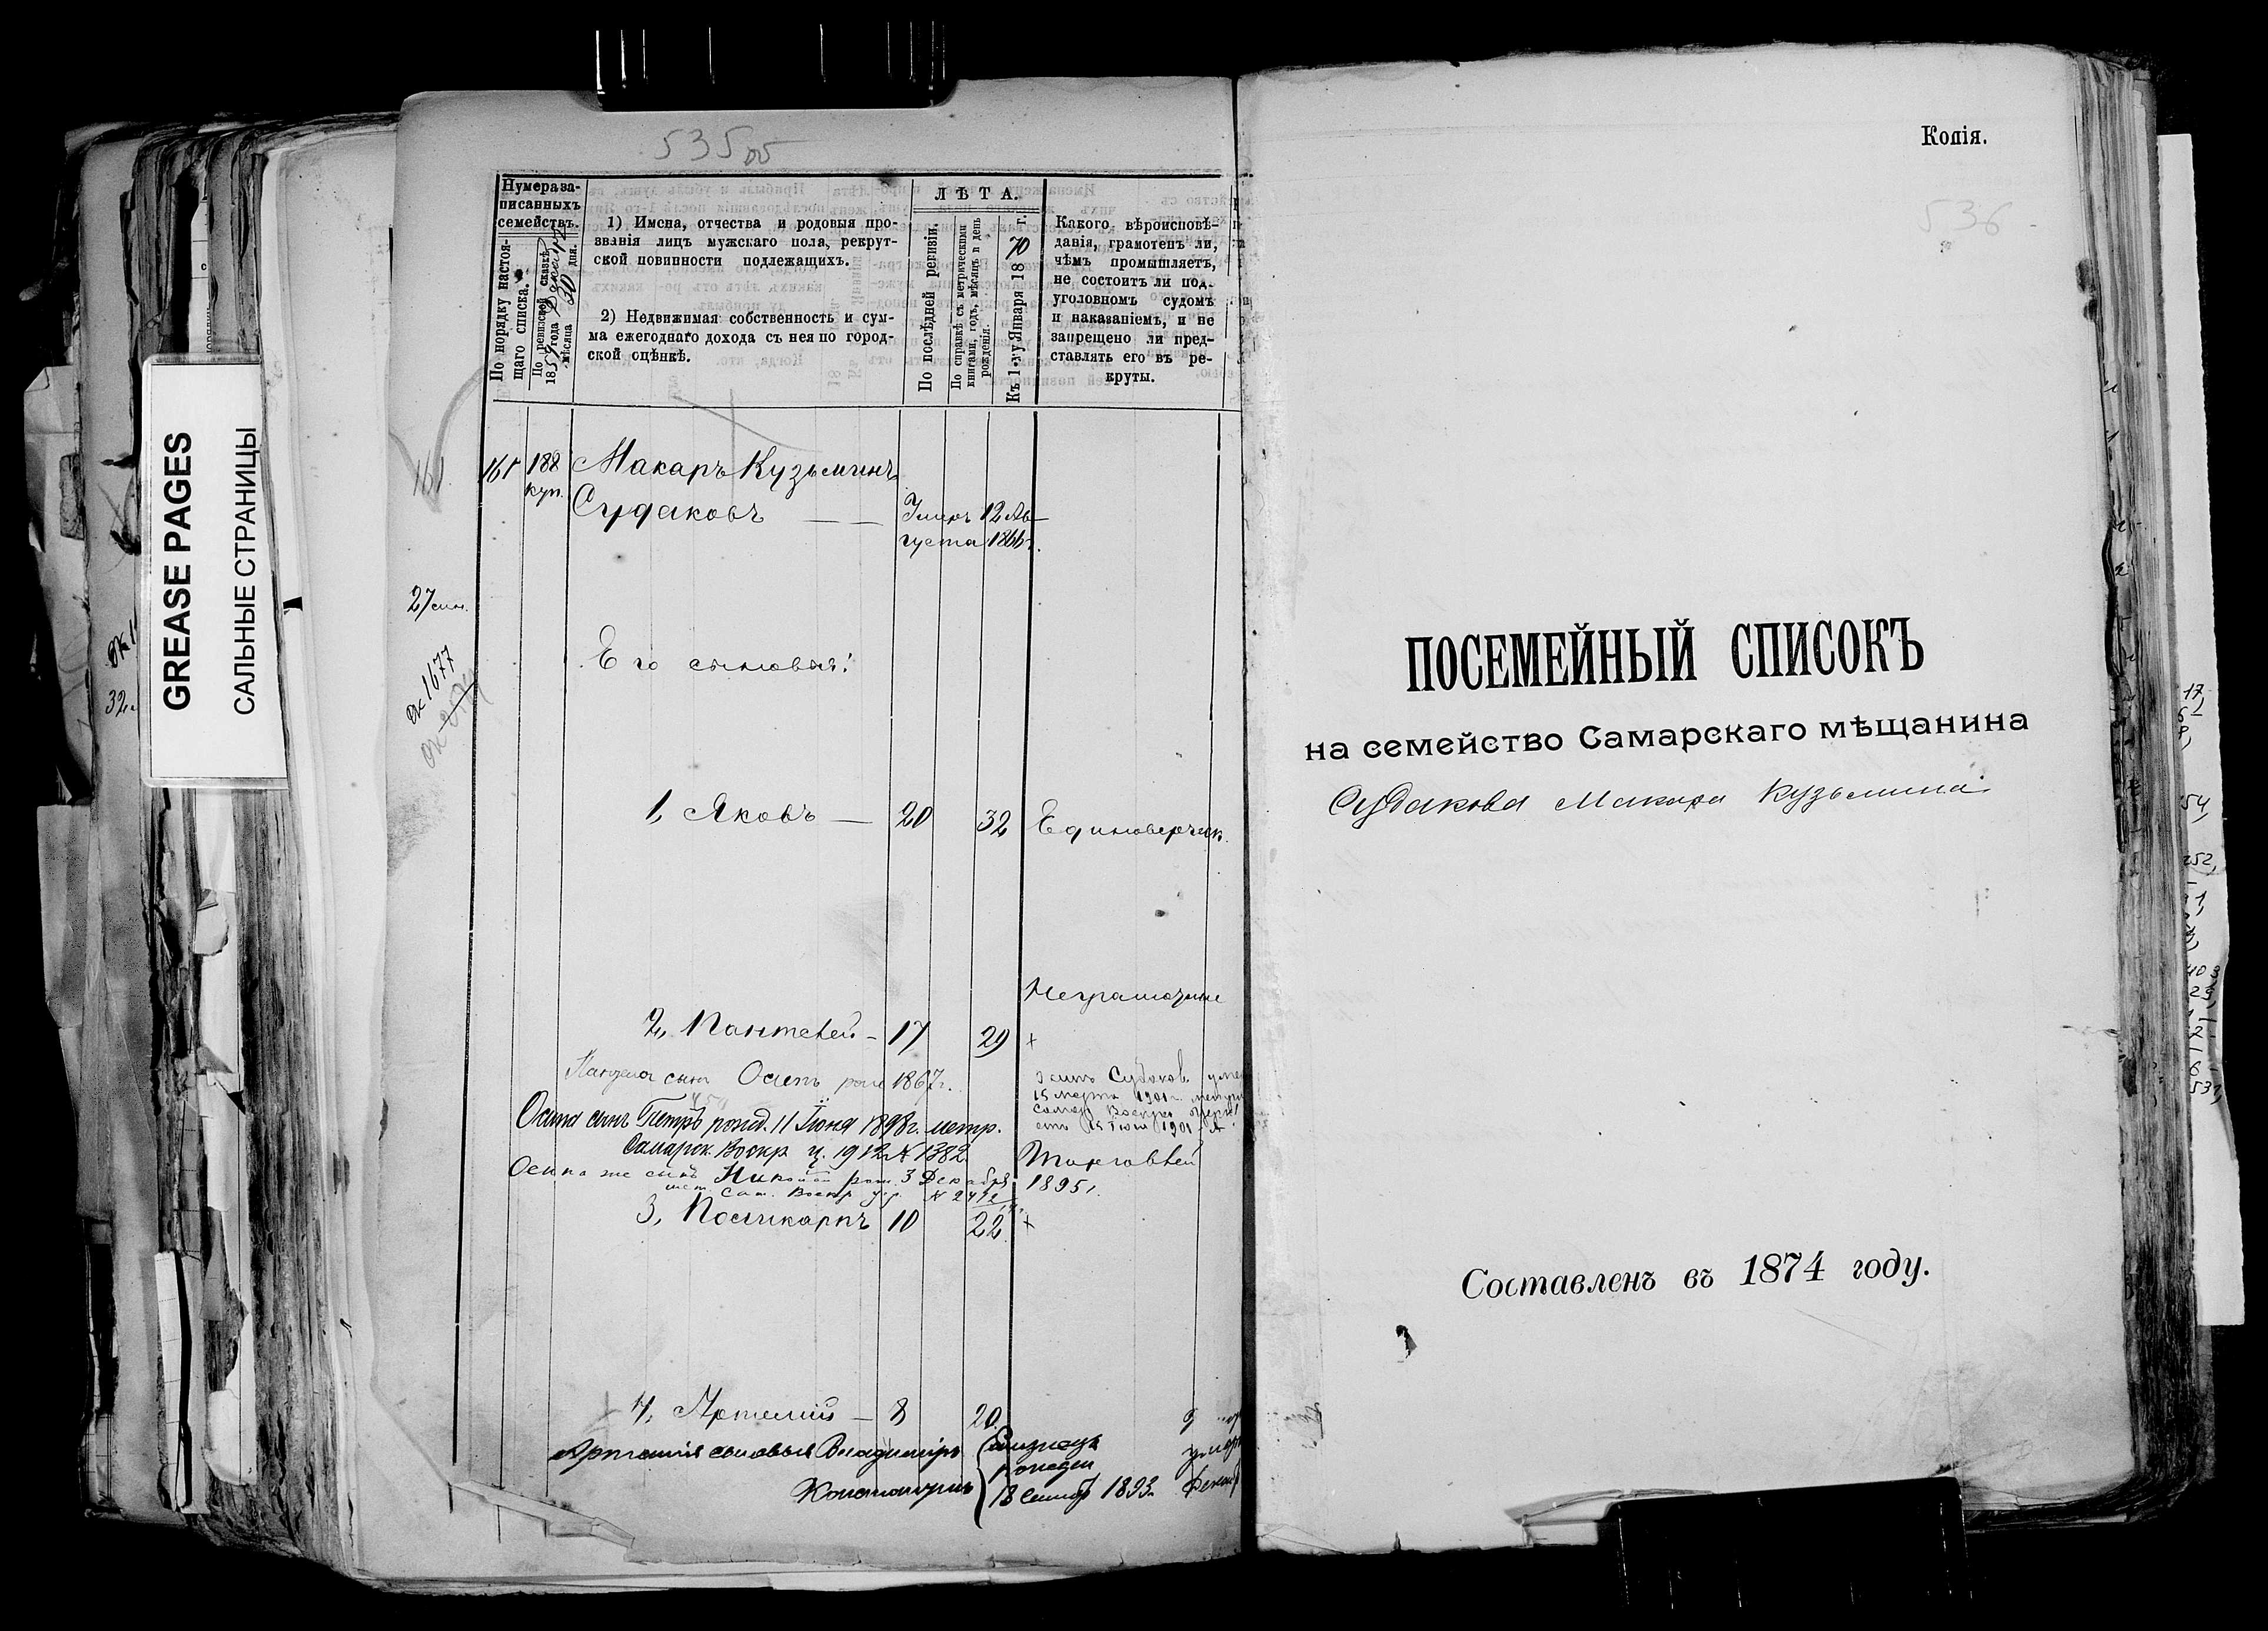 GREASE PAGES
САЛЬНЫЕ СТРАНИЦЫ
535 об
Нумера за-
писанныхъ
семействъ.
По порядку настоя-
щаго списка.
По ревизской сказкѣ
185 года
мѣсяца 30 дня.
1) Имена, отчества и родовыя про-
званія лицъ мужскаго пола, рекрут-
ской повинности подлежащихъ.
2) Недвижимая собственность и сум-
ма ежегоднаго дохода съ нея по город-
ской оцѣнкѣ.
ЛѢТА.
По послѣдней ревизіи.
По справкѣ съ метрическими
книгами, годъ, мѣсяцъ и день
рожденія.
Къ 1-му Января 1870 г.
Какого вѣроисповѣ-
данія, грамотенъ ли,
чѣмъ промышляетъ,
не состоитъ ли под.
уголовномъ судомъ
и наказаніемъ, и не
запрещено ли пред-
ставлять его въ ре-
круты.
161.
161 188 Макаръ Кузьминъ
куп. Судаковъ — — Умеръ 12 Ав-
густа 1866 г.
27 сим.
ок 1677
Его сыновья:
1, Яковъ — 20 32 Единоверческ.
Неграмотные
2, Пантелей - 17 29 +
сынъ Осипъ 1867 г.
Осипъ Судаков
15 марта 1901 г.
Осипа сынъ Петръ рожд. 11 Іюня 1898 г. метр.
Самарск. Воскр ц. 1912 № 1382
Торговлей
Осипа же сынъ Николай рож. 3 Декабря 1895 г.
3, Поликарпъ 10 22 +
4, Артемий — 8 20
Артемія сыновья Владиміръ Близнецы
Константинъ рожден
13 Сентяб 1893
Копія.
536
ПОСЕМЕЙНЫЙ СПИСОКЪ
на семейство Самарскаго мѣщанина
Судакова Макара Кузьмина.
Составленъ въ 1874 году.